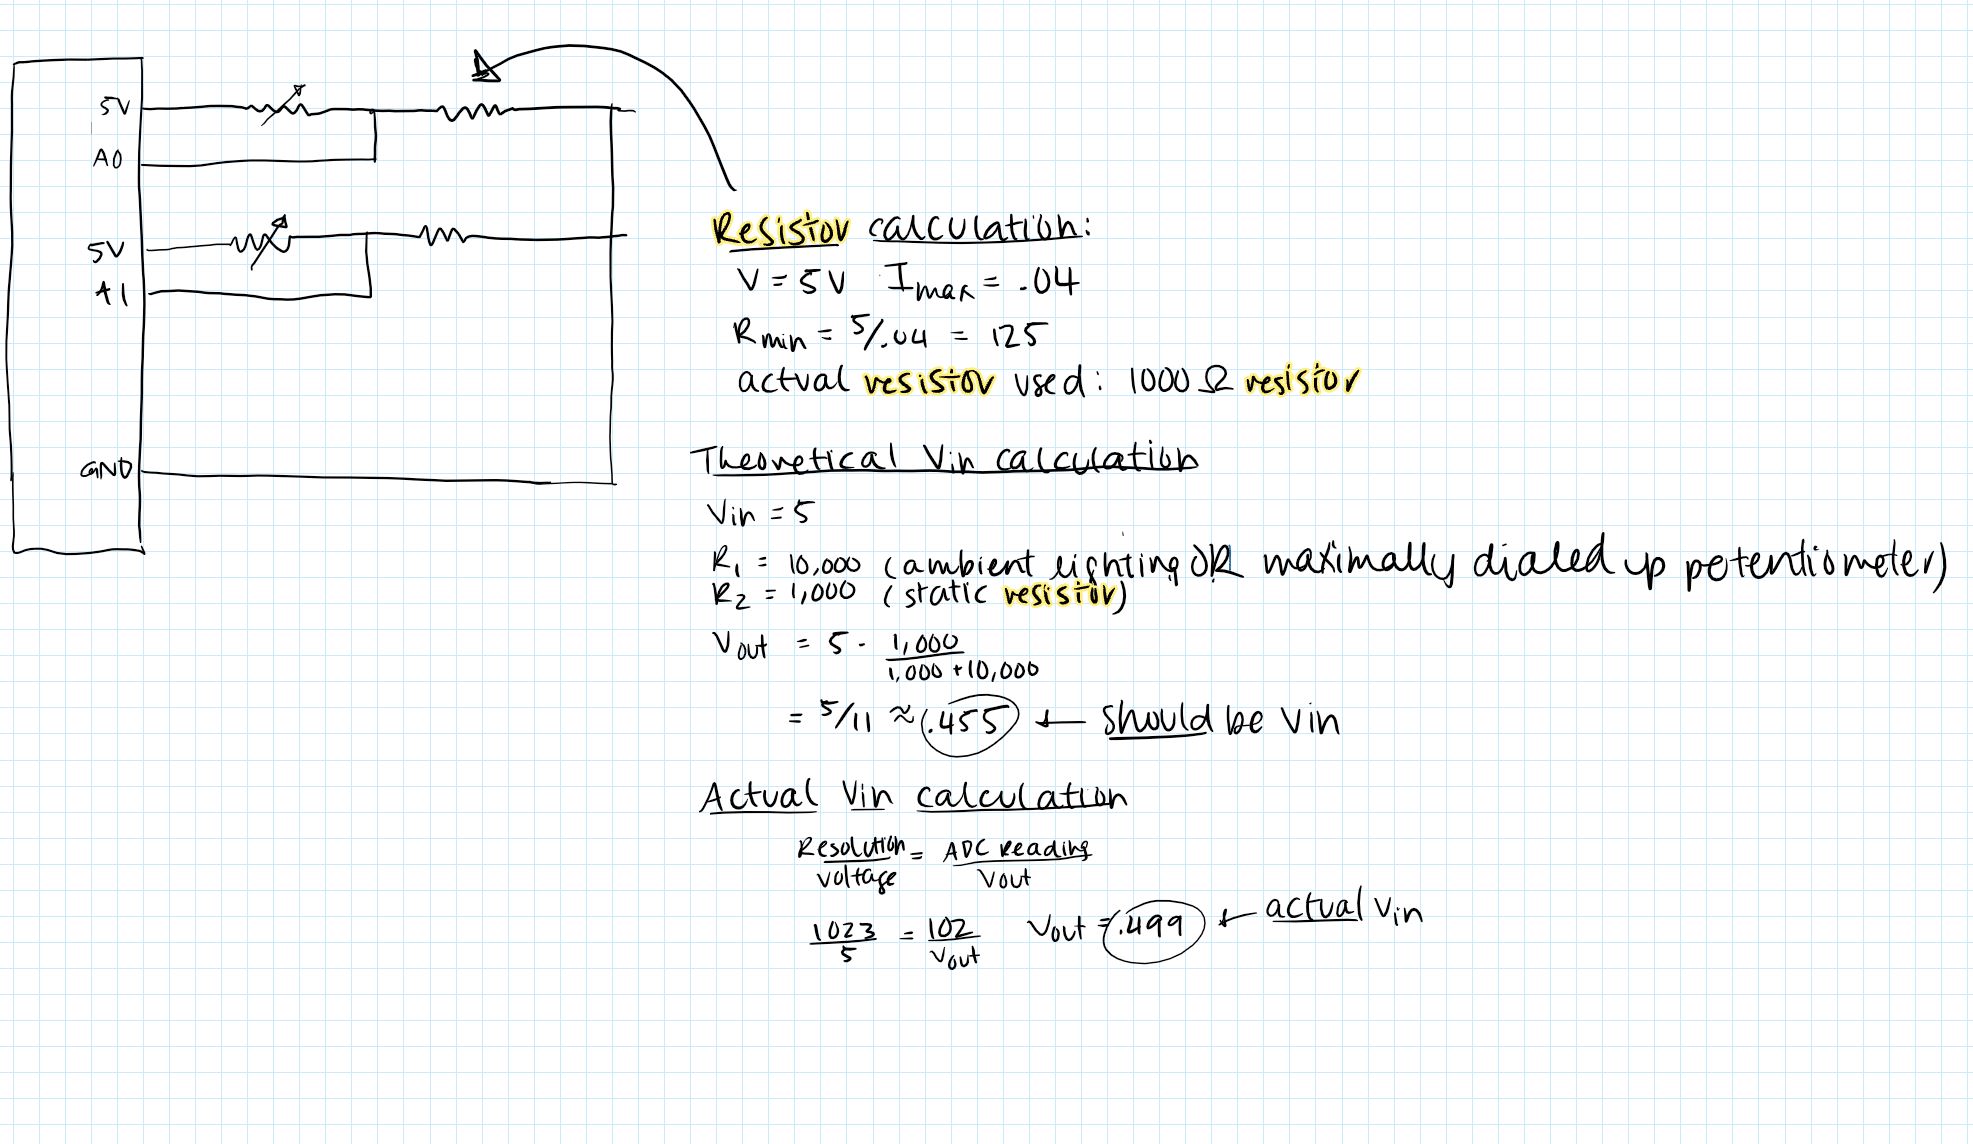 5V
A0
5V
A1
GND
Resistor calculation:
V = 5V Imax = .04
Rmin = 5/.04 = 125
actual resistor used: 1000 Ω resistor
Theoretical Vin calculation
Vin = 5
R1 = 10,000 (ambient lighting OR maximally dialed up potentiometer)
R2 = 1,000 (static resistor)
Vout = 5 · 1,000 / 1,000 + 10,000
= 5/11 ≈ .455 ← should be Vin
Actual Vin calculation
Resolution / voltage = ADC Reading / Vout
1023 / 5 = 102 / Vout Vout = .499 ← actual Vin